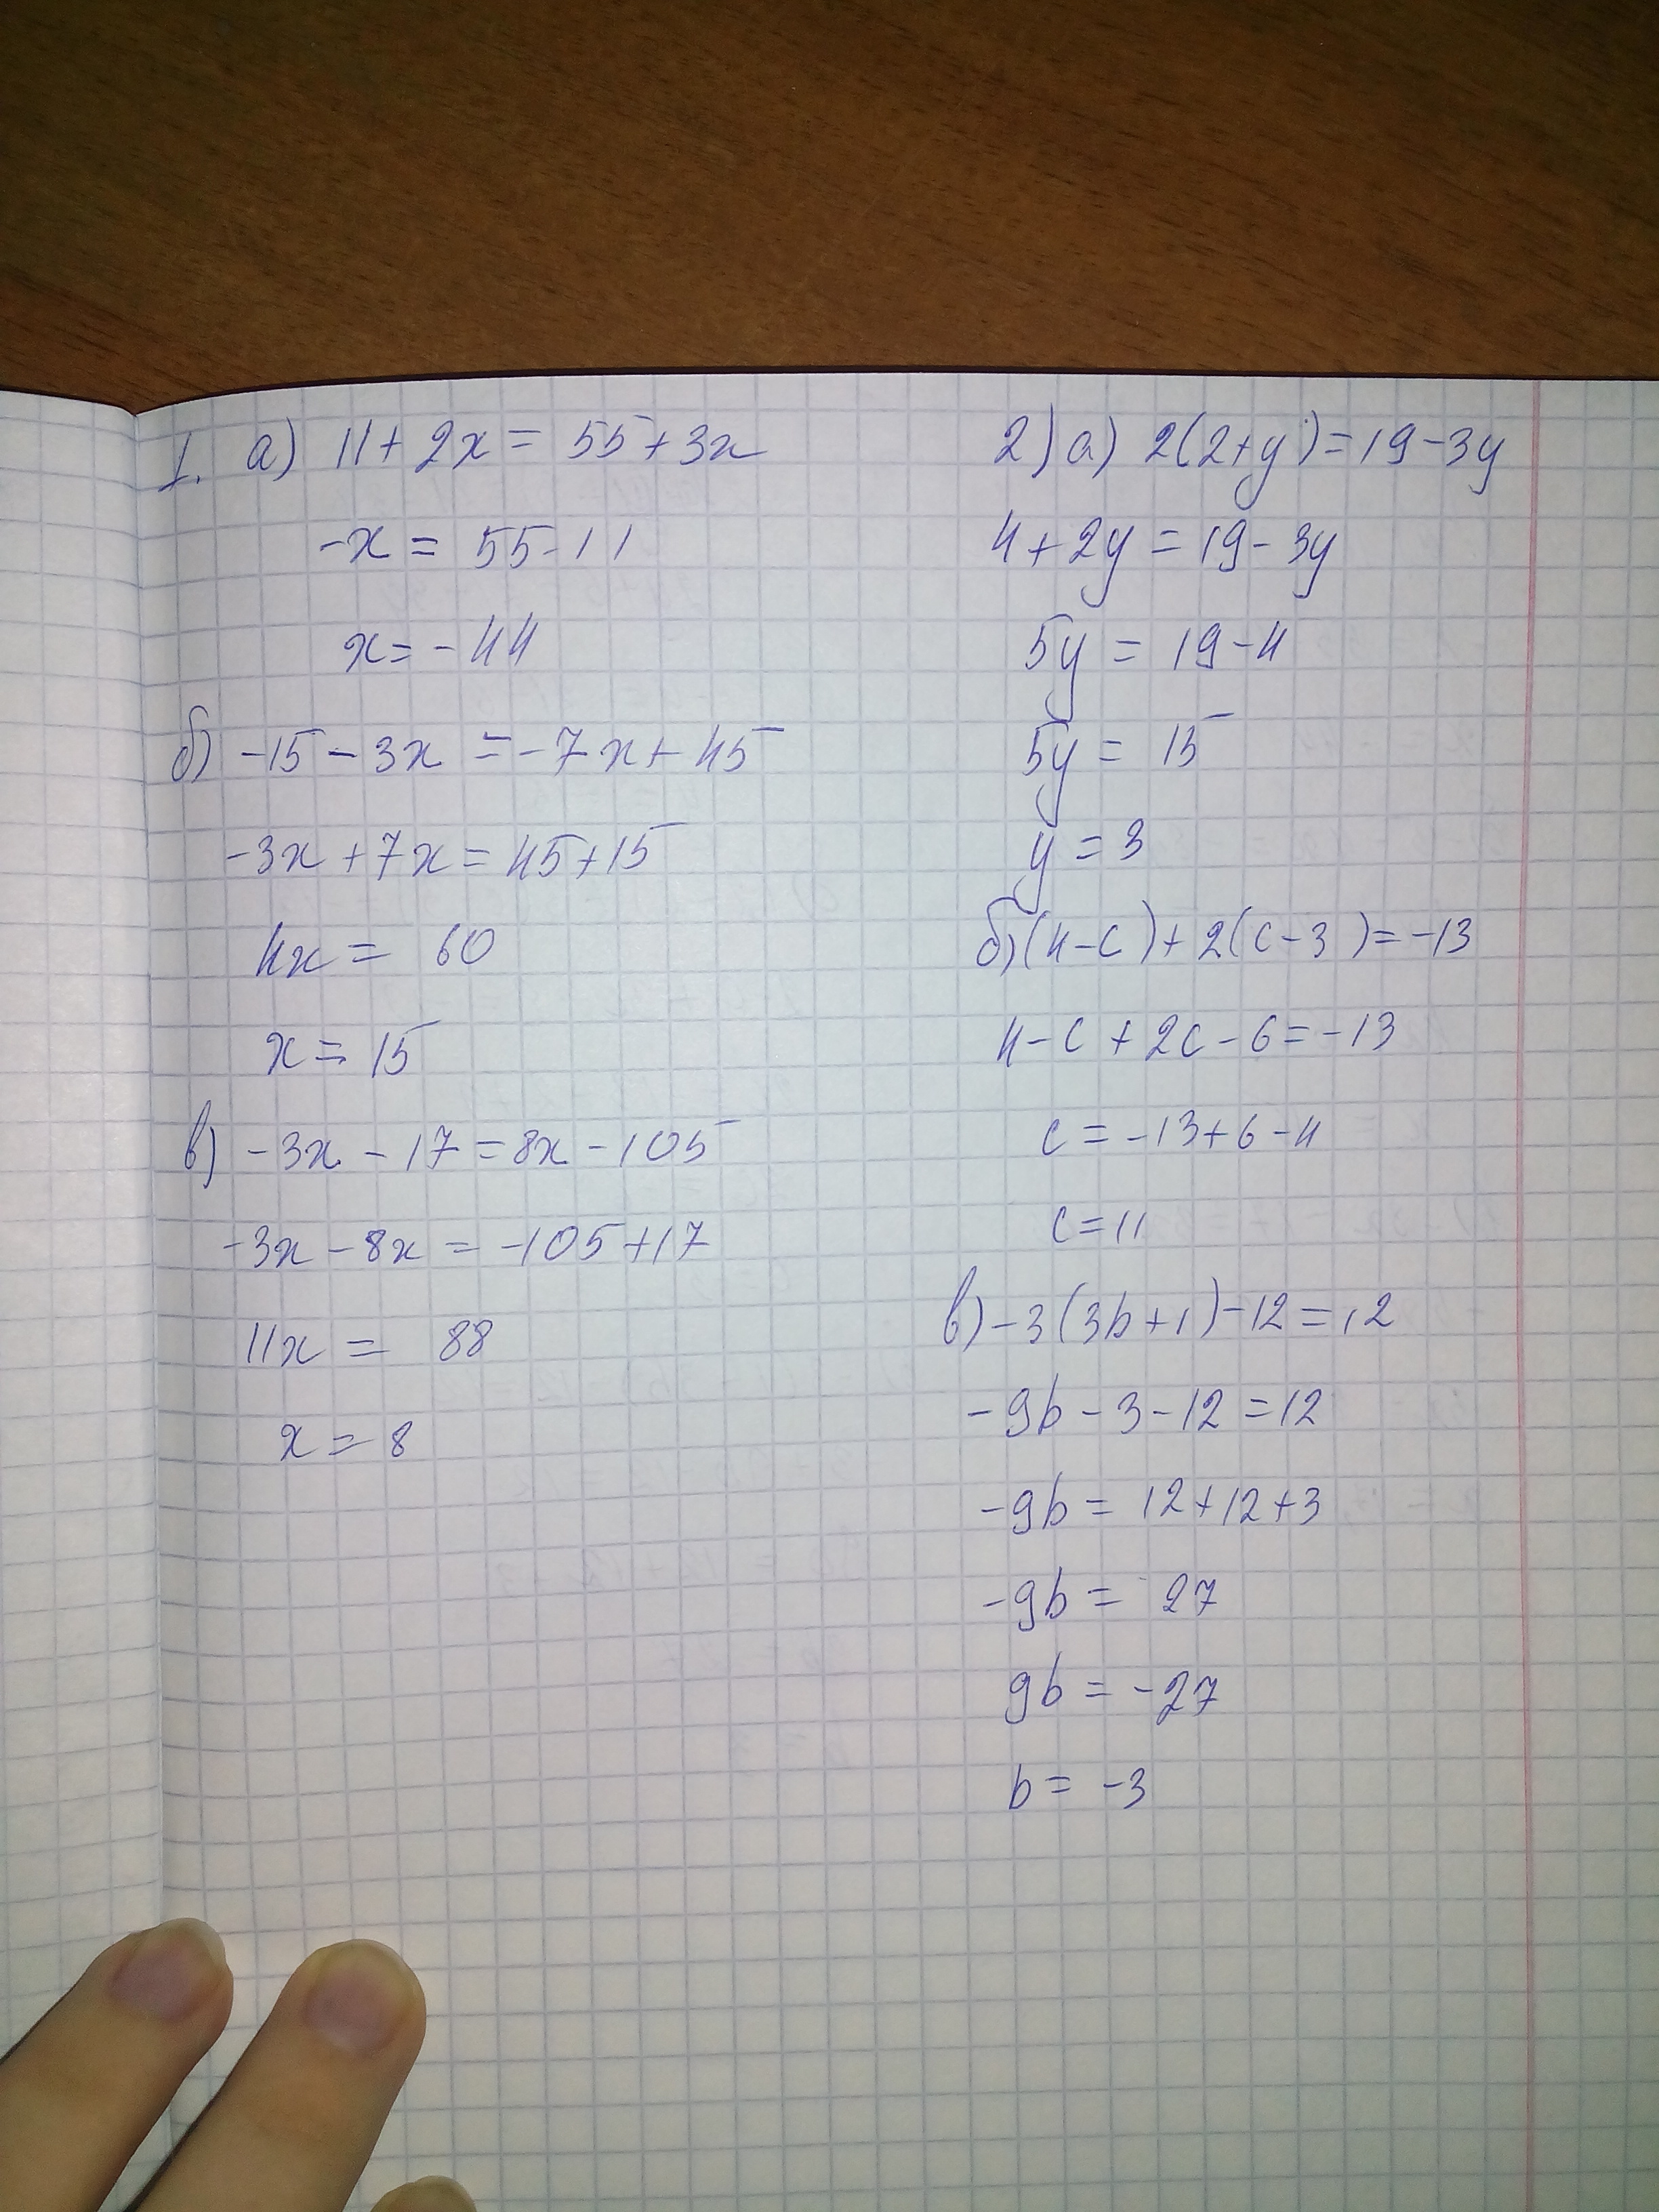 1. а) 11 + 2x = 55 + 3x
-x = 55 - 11
x = -44
б) -15 - 3x = -7x + 45
-3x + 7x = 45 + 15
4x = 60
x = 15
в) -3x - 17 = 8x - 105
-3x - 8x = -105 + 17
11x = 88
x = 8
2) а) 2(2+y) = 19 - 3y
4 + 2y = 19 - 3y
5y = 19 - 4
5y = 15
y = 3
б) (4-c) + 2(c-3) = -13
4 - c + 2c - 6 = -13
c = -13 + 6 - 4
c = 11
в) -3(3b+1) - 12 = 12
-9b - 3 - 12 = 12
-9b = 12 + 12 + 3
-9b = 27
9b = -27
b = -3